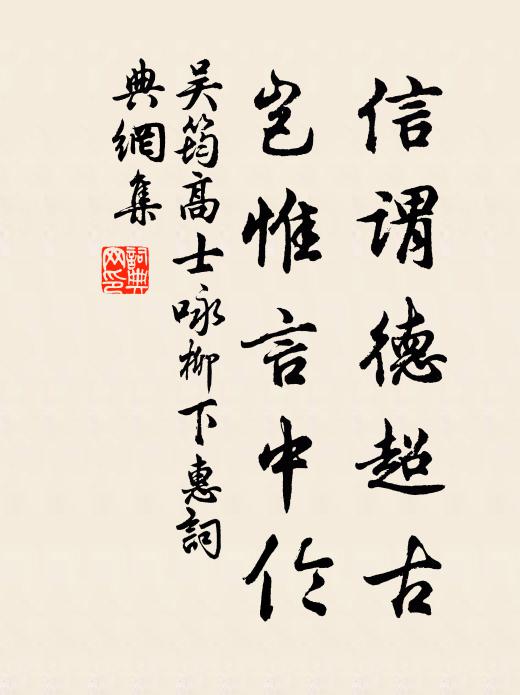 信謂德超古
岂惟言中伦
吴筠高士咏柳下惠詞
典網集
詞典
网印